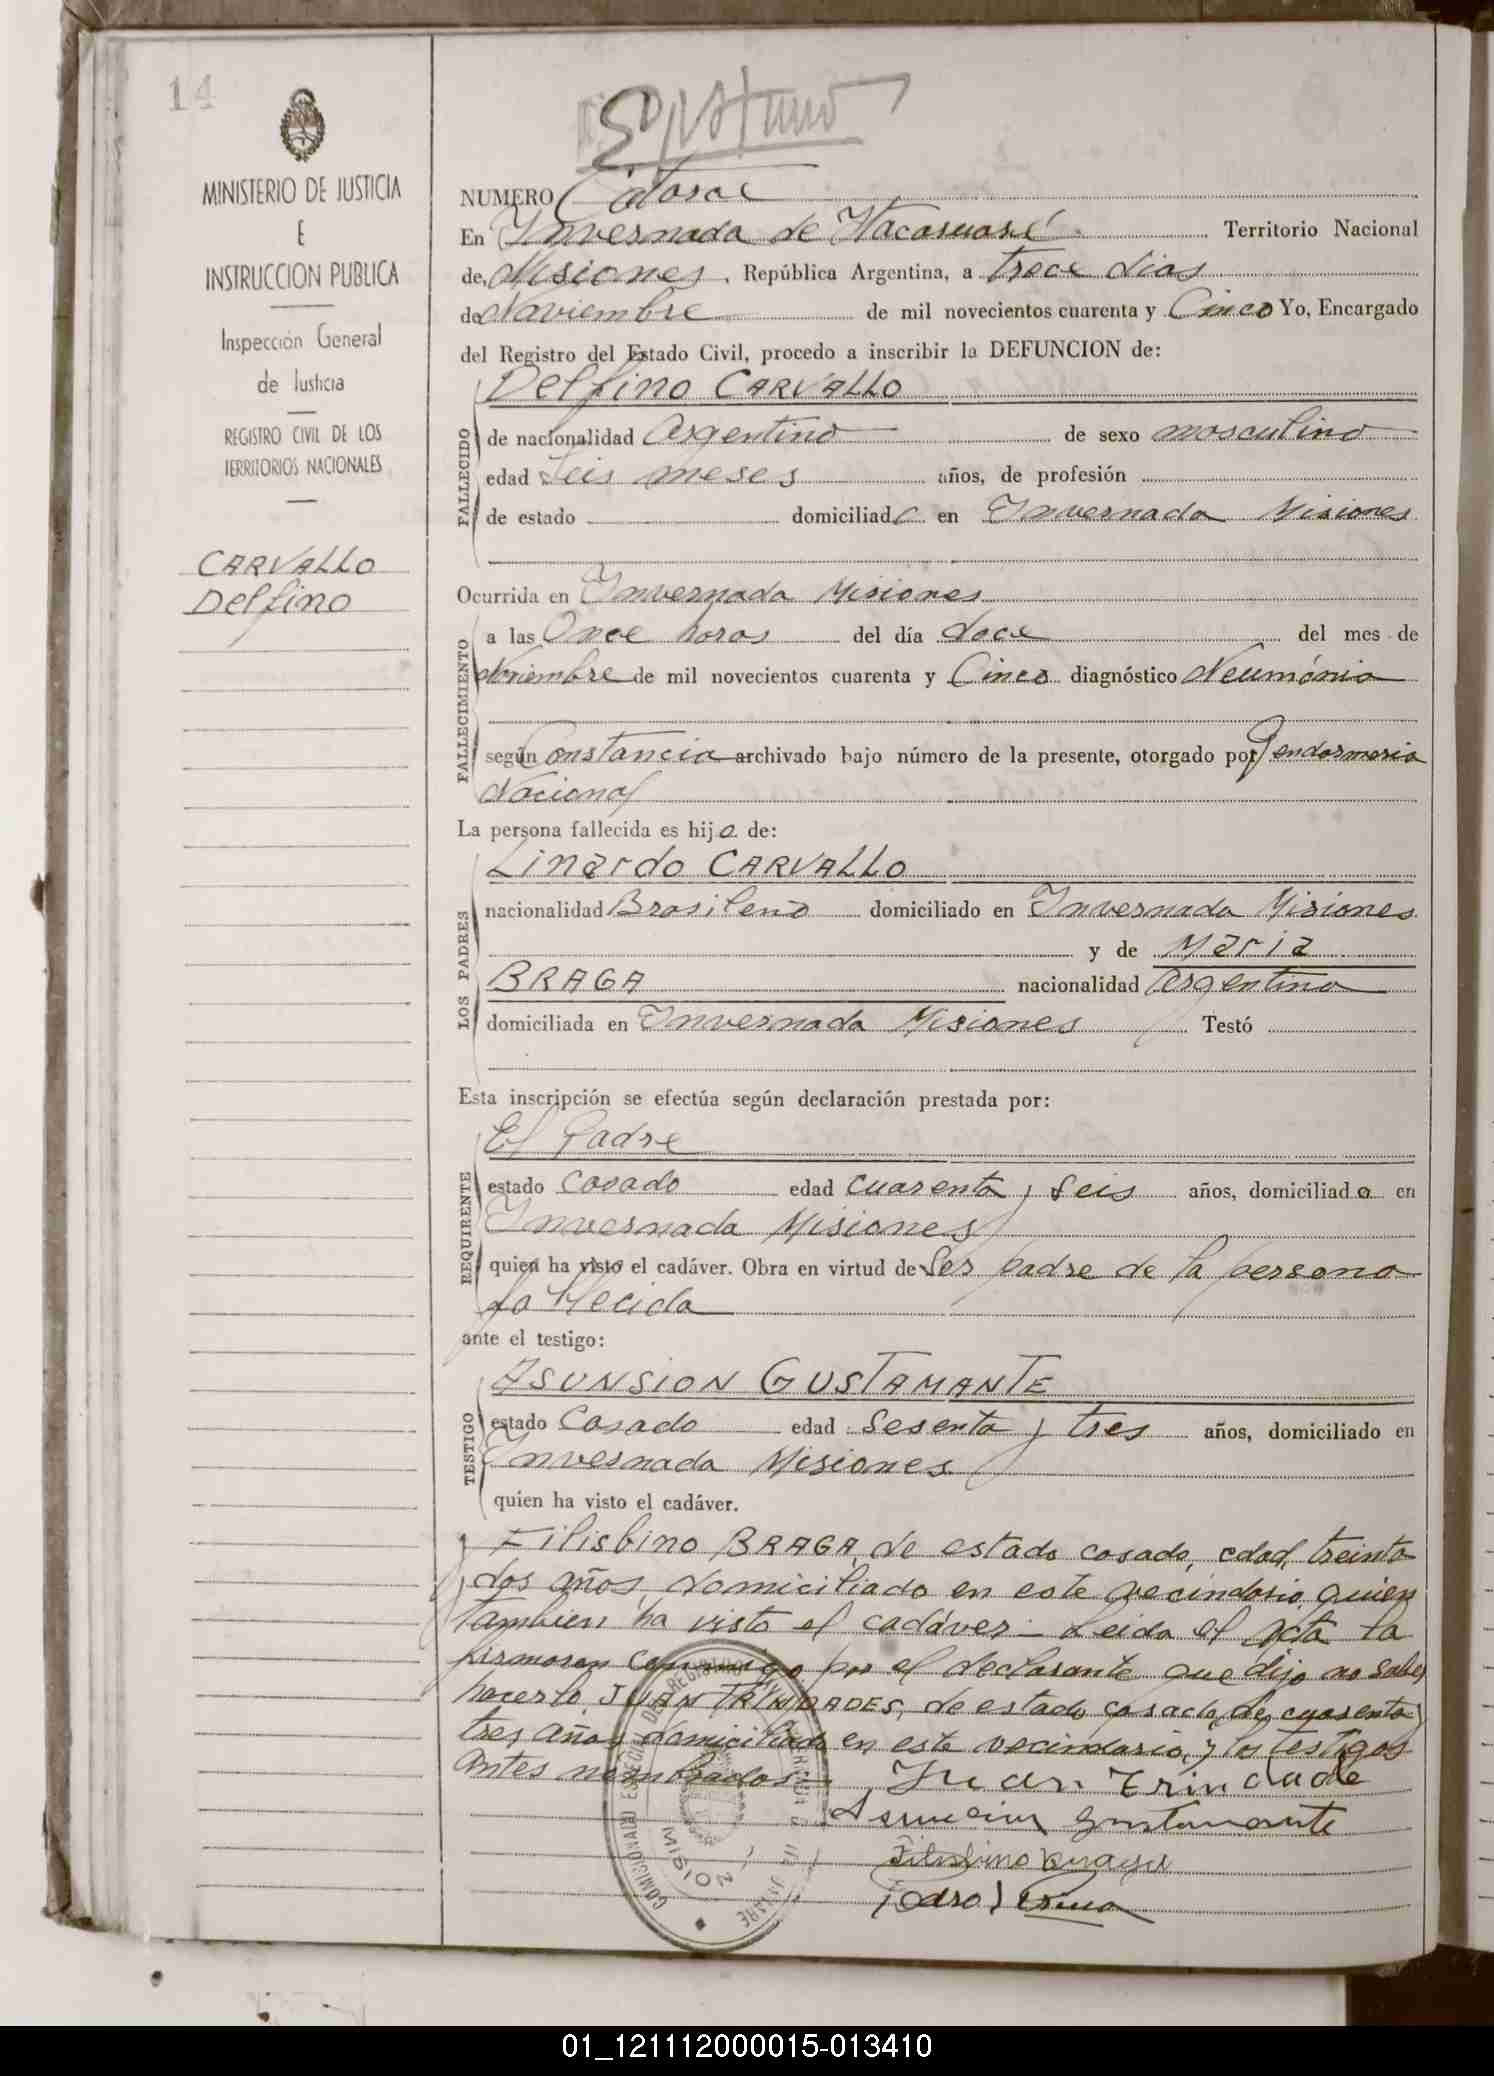 14
MINISTERIO DE JUSTICIA
E
INSTRUCCION PUBLICA
Inspección General
de Justicia
REGISTRO CIVIL DE LOS
TERRITORIOS NACIONALES
CARVALLO
Delfino
NUMERO Catorce
En Invernada de Itacaruaré Territorio Nacional
de Misiones, República Argentina, a trece dias
de Noviembre de mil novecientos cuarenta y Cinco Yo, Encargado
del Registro del Estado Civil, procedo a inscribir la DEFUNCION de:
Delfino CARVALLO
FALLECIDO
de nacionalidad Argentino de sexo masculino
edad Seis meses años, de profesión
de estado domiciliado en Invernada Misiones
Ocurrida en Invernada Misiones
FALLECIMIENTO
a las Once horas del día doce del mes de
Noviembre de mil novecientos cuarenta y Cinco diagnóstico Neumónia
según Constancia archivado bajo número de la presente, otorgado por Gendarmeria
Nacional
La persona fallecida es hijo de:
LOS PADRES
Linardo CARVALLO
nacionalidad Brasileño domiciliado en Invernada Misiones
y de Maria
BRAGA nacionalidad Argentina
domiciliada en Invernada Misiones Testó
Esta inscripción se efectúa según declaración prestada por:
REQUIRENTE
El Padre
estado Casado edad cuarenta y seis años, domiciliado en
Invernada Misiones
quien ha visto el cadáver. Obra en virtud de Ser padre de la persona
fallecida
ante el testigo:
TESTIGO
ASUNSION GUSTAMANTE
estado Casado edad Sesenta y tres años, domiciliado en
Invernada Misiones
quien ha visto el cadáver.
y Filisbino BRAGA, de estado casado, edad, treinta
y dos años, domiciliado en este vecindario, quien
tambien ha visto el cadáver - Leida el acta la
firmaron conmigo por el declarante que dijo no saber
hacerlo JUAN TRINDADES, de estado casado, de cuarenta y
tres años, domiciliado en este vecindario, y los testigos
antes nombrados. Juan Trindade
Asuncion Gustamante
Filisbino Braga
Pedro
01_121112000015-013410